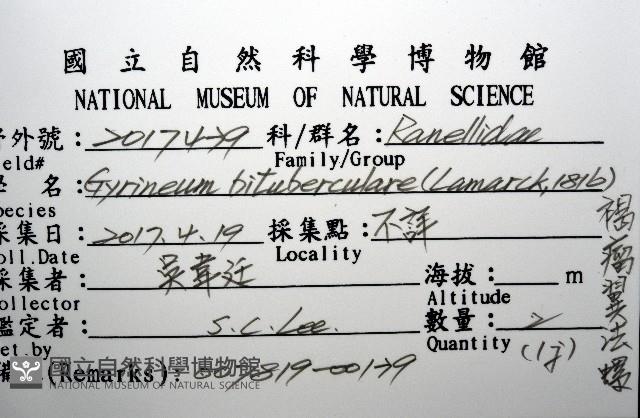 國立自然科學博物館
NATIONAL MUSEUM OF NATURAL SCIENCE
外號: 科/群名: Ranellidae
eld# Family/Group
名: Gyrineum bituberculare (Lamarck, 1816)
pecies
採集日: 2017.4.19 採集點: 不詳
oll.Date Locality
採集者: 吳韋廷 海拔: m
ollector Altitude
鑑定者: S.C. Lee. 數量: 2
et.by Quantity (1j)
(Remarks)
國立自然科學博物館
NATIONAL MUSEUM OF NATURAL SCIENCE
褐瘤翼法螺